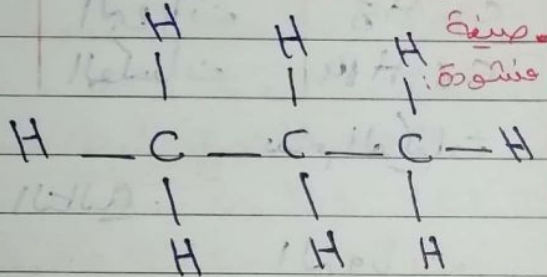 صيغة
منشودة:
H H H
H — C — C — C — H
H H H